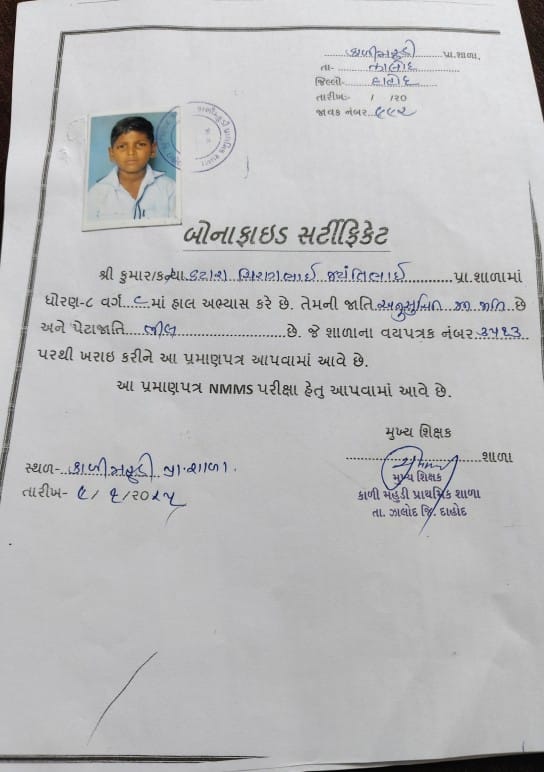 કાળીમહુડી પ્રા.શાળા,
તા- ઝાલોદ
જિલ્લો- દાહોદ
તારીખ:- / /૨૦
જાવક નંબર
બોનાફાઇડ સર્ટીફિકેટ
શ્રી કુમાર/કન્યા કટારા ચિરાગભાઈ જયંતિભાઈ પ્રા.શાળામાં
ધોરણ-૮ વર્ગ ૮માં હાલ અભ્યાસ કરે છે. તેમની જાતિ અનુસુચિત જન જાતિ છે
અને પેટાજાતિ ભીલ છે. જે શાળાના વયપત્રક નંબર ૩૫૧૩
પરથી ખરાઇ કરીને આ પ્રમાણપત્ર આપવામાં આવે છે.
આ પ્રમાણપત્ર NMMS પરીક્ષા હેતુ આપવામાં આવે છે.
મુખ્ય શિક્ષક
શાળા
સ્થળ- કાળીમહુડી પ્રા.શાળા.
મુખ્ય શિક્ષક
તારીખ- ૯/ ૧/૨૦૨૫
કાળી મહુડી પ્રાથમિક શાળા
તા. ઝાલોદ જિ. દાહોદ